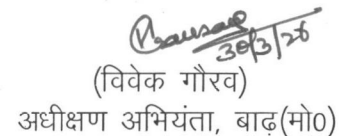 30/3/26
(विवेक गौरव)
अधीक्षण अभियंता, बाढ़(मो0)